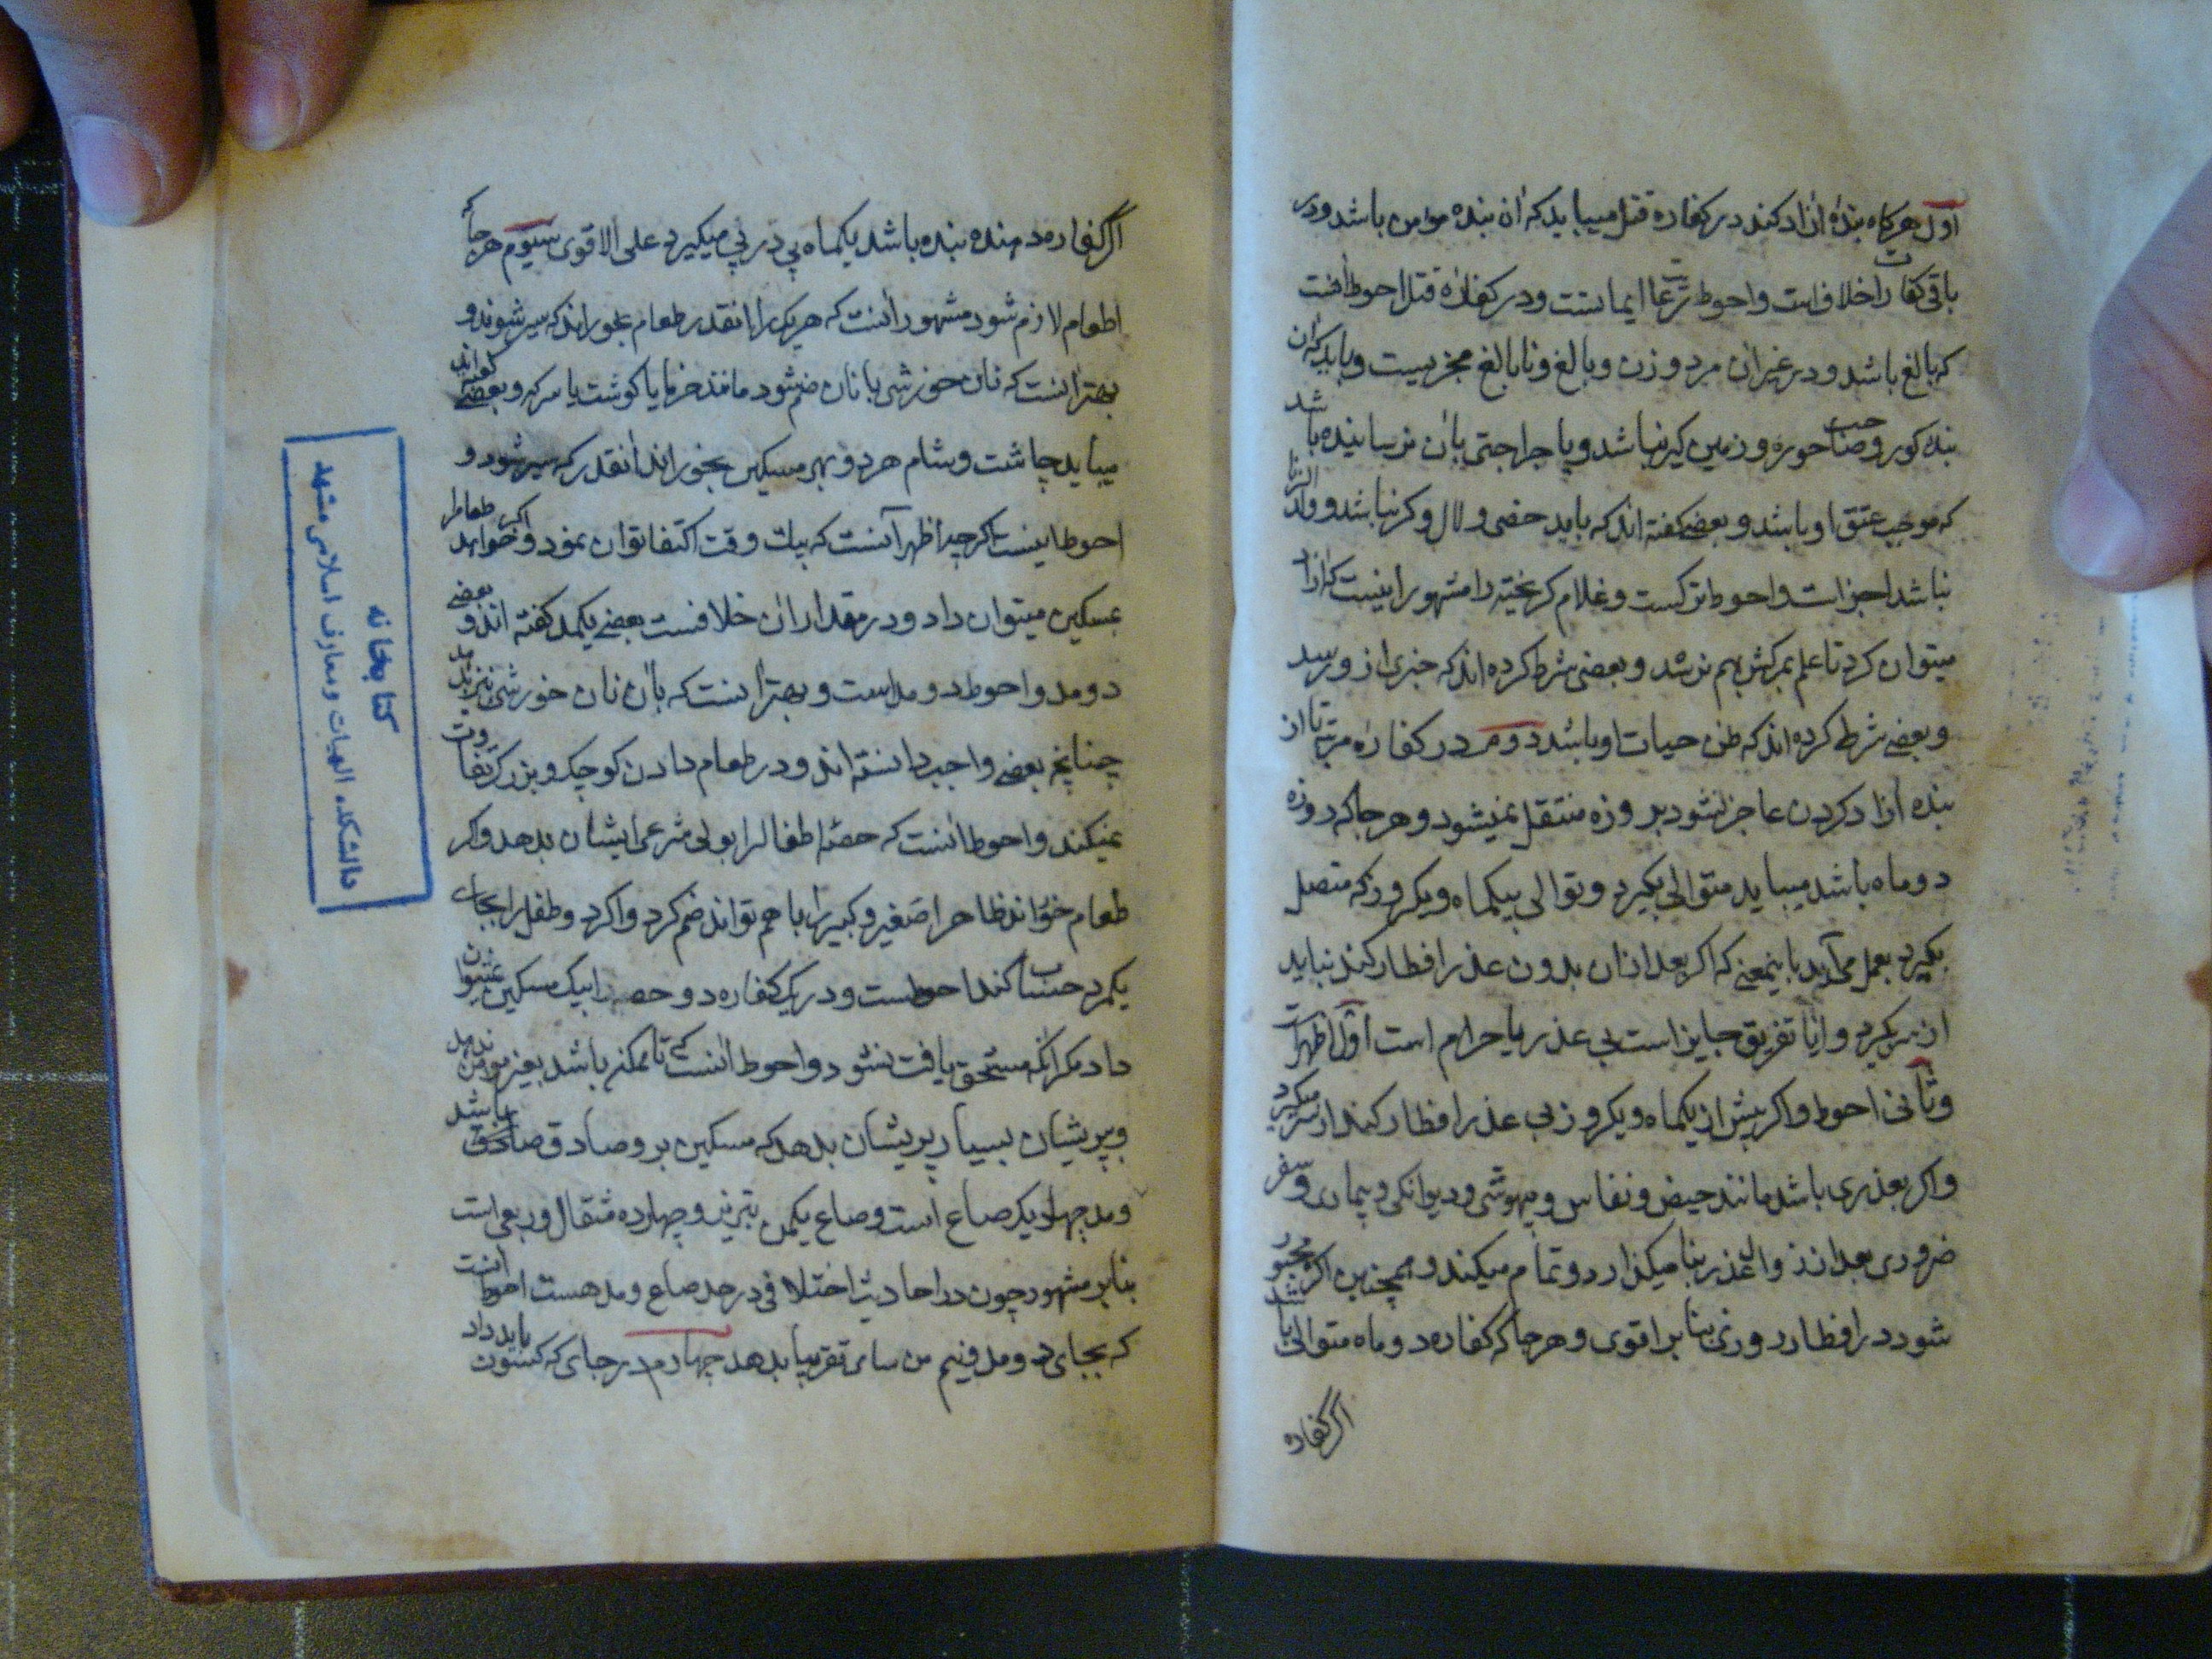 اول هرکاه بنده ازاد کند در کفاره قتل میباید که ان بنده مومن باشد و در
باقی کفارات خلافست و احوط رعایت ایمانست و در کفاره قتل احوط انست
که بالغ باشد و در غیر ان مرد و زن و بالغ و نابالغ مجزیست و باید که ان
بنده کور و صاحب خوره و زمین کیر نباشد و یا جراحتی بان نرسانیده باشد
که موجب عتق او باشد و بعضی کفته اند که باید خصی و لال و کر نباشد و ولد الزنا
نباشد اجزاست و احوط ترکست و غلام کریخته را مشهور اینست که ازاد
میتوان کرد تا علم بمرکش بهم نرسد و بعضی شرط کرده اند که خبری از و رسد
و بعضی شرط کرده اند که ظن حیات او باشد دوم در کفاره مرتبه تا از
بنده ازاد کردن عاجز نشود بروزه منتقل نمیشود و هر جا که روزه
دو ماه باشد میباید متوالی بکیرد و توالی بیکماه و یکروز که متصل
بکیرد بعمل می آید باینمعنی که اکر بعد از ان بدون عذر افطار کند نباید
از سر بکیرد و ایا تفریق جایز است بی عذر یا حرام است اول اظهر است
و ثانی احوط و اکر پیش از یکماه و یکروز بی عذر افطار کند از سر میکیرد
و اکر بعذری باشد مانند حیض و نفاس و بیهوشی و دیوانکی و بیماری و سفر
ضروری بعد از زوال عذر بنا میکذارد و تمام میکند و همچنین اکر مجبور
شود در افطار روزی بنا بر اقوی و هر جا که کفاره دو ماه متوالی باشد
اکر کفاره
اکر کفاره دهنده بنده باشد یکماه پی در پی میکیرد علی الاقوی سیوم هر جا که
اطعام لازم شود مشهور انست که هر یک را انقدر طعام بخوراند که سیر شوند و
بهتر انست که نان خورشی با نان ضم شود مانند خرما یا کوشت یا سرکه و بعضی کفته اند
میباید چاشت و شام هر دو بهر مسکین بخوراند انقدر که سیر شود و
احوط اینست اکرچه اظهر آنست که بیک وقت اکتفا توان نمود و اکر خواهد طعام را
بمسکین میتوان داد و در مقدار ان خلافست بعضی یکمد کفته اند و بعضی
دو مد و احوط دو مد است و بهتر انست که بان نان خورشی نیز بدهد
چنانچه بعضی واجب دانسته اند و در طعام دادن کوچک و بزرک تفاوت
نمیکند و احوط انست که حصه اطفال را بولی شرعی ایشان بدهد و اکر
طعام خوراند ظاهرا صغیر و کبیر را با هم تواند ضم کرد و اکر دو طفل را بجای
یکمرد حساب کند احوطست و در یک کفاره دو حصه را بیک مسکین نمیتوان
داد مکر انکه مستحق یافت نشود و احوط انست که تا ممکن باشد بغیر مومن ندهد
و پریشان بسیار پریشان بدهد که مسکین برو صادق باشد
و مد چهار یک صاع است و صاع یکمن تبریز و چهارده مثقال و ربعی است
بنابر مشهور چون در احادیث اختلافی در حد صاع و مد هست احوط انست
که بجای دو مد و نیم من شاهی تقریبا بدهد چهارم در جای که کسوت باید داد
کتابخانه
دانشکده الهیات و معارف اسلامی مشهد